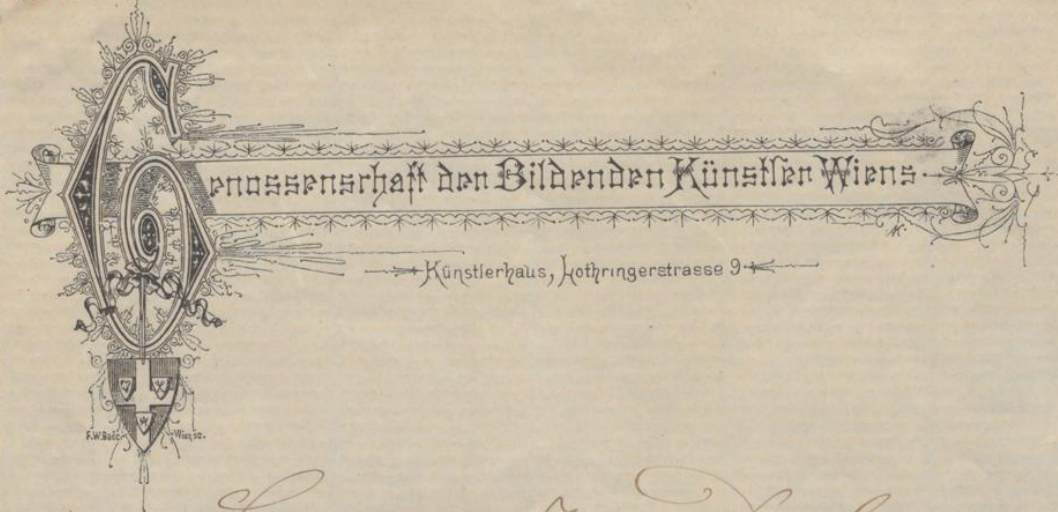 Genossenschaft den Bildenden Künstler Wiens
Künstlerhaus, Lothringerstrasse 9